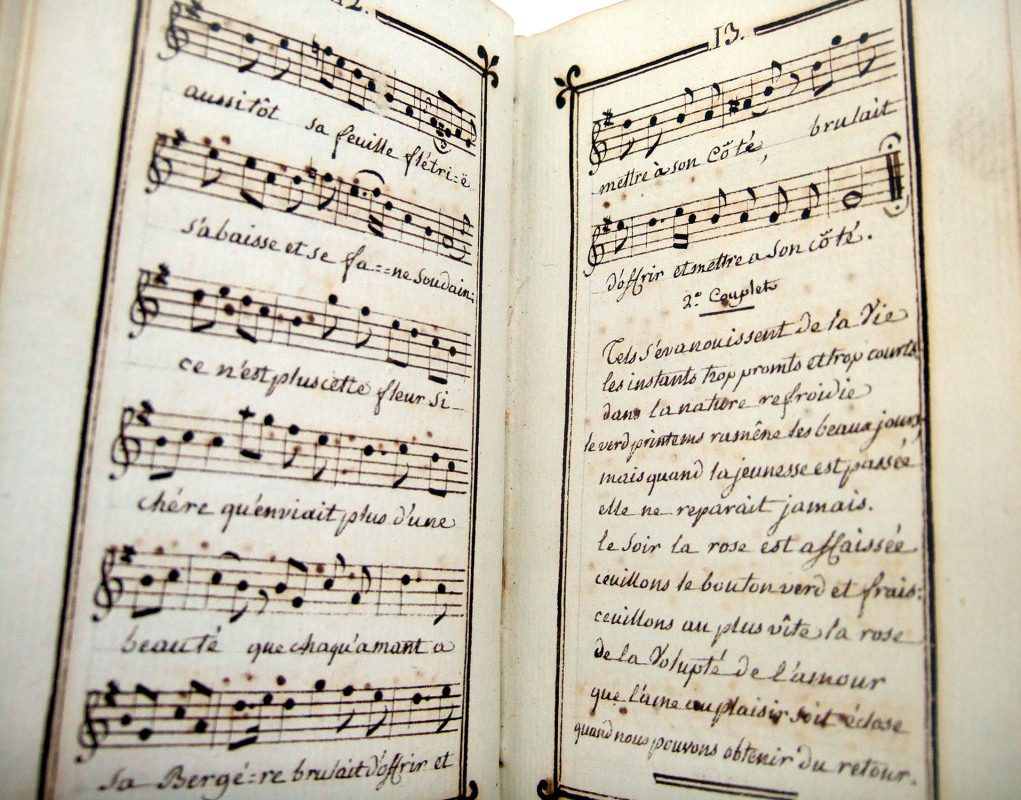 12.
aussitôt sa feuille flétri=ë
s'abaisse et se fa==ne soudain:
ce n'est plus cette fleur si_
chére qu'enviait plus d'une
beauté que chaqu'amant a
sa Bergé=re brulait d'offrir et
13.
mettre à son côté, brulait
d'offrir et mettre a son côté.
2e. Couplet
Tels s'evanouissent de la Vie
les instants trop promts et trop courts
dans la nature refroidie
le verd printems ramêne les beaux jours,
mais quand la jeunesse est passée
elle ne reparait jamais.
le Soir la rose est affaissée
ceuillons le bouton verd et frais:
ceuillons au plus vîte la rose
de la Volupté de l'amour
que l'ame au plaisir soit éclose
quand nous pouvons obtenir du retour.